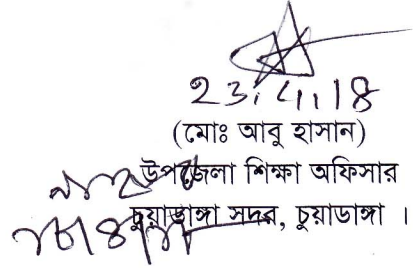 23.4.18
(মোঃ আবু হাসান)
উপজেলা শিক্ষা অফিসার
চুয়াডাঙ্গা সদর, চুয়াডাঙ্গা ।